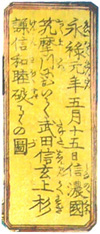 永禄元年五月十五日信濃國
筑摩川におゐて武田信玄上杉
謙信和睦破るゝの圖